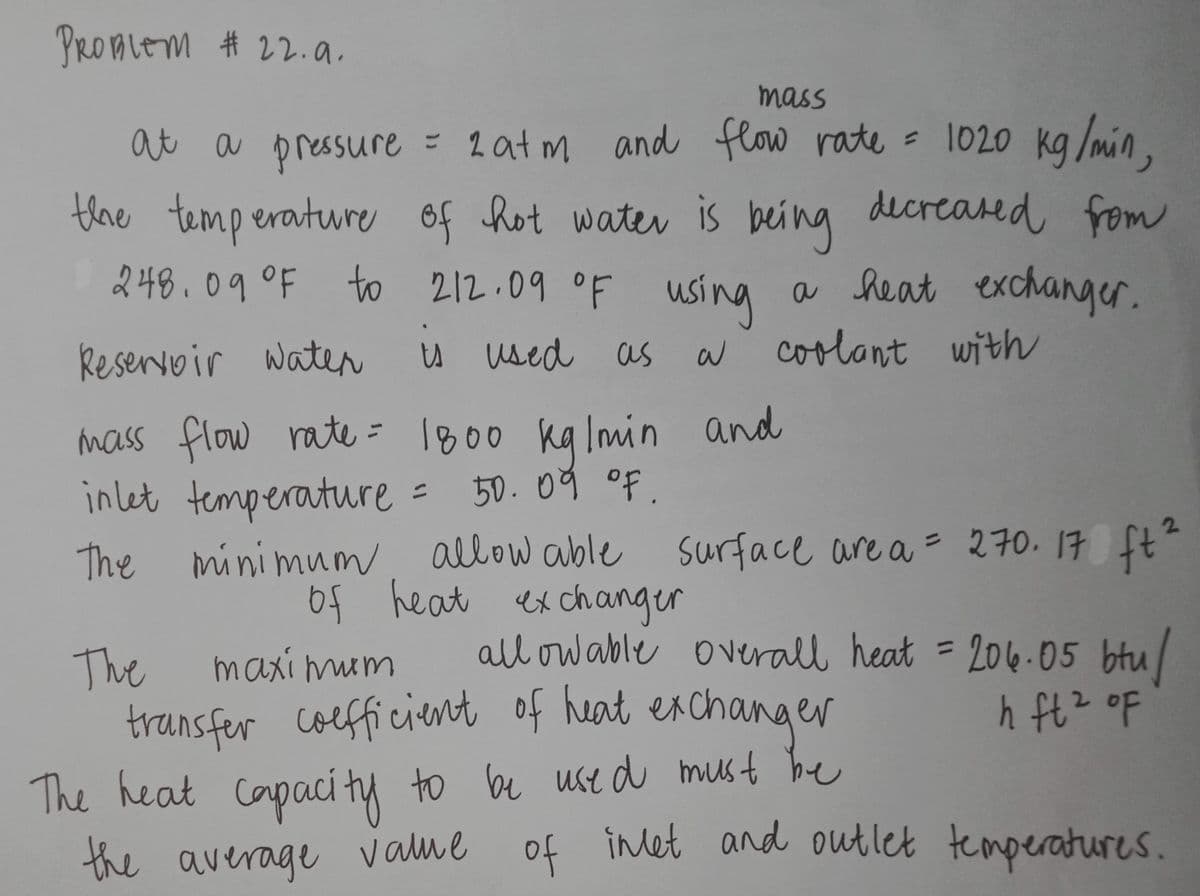 PROBLEM # 22.a.
mass
at a pressure = 2 atm and flow rate = 1020 kg/min,
the temperature of hot water is being decreased from
248.09 °F to 212.09 °F using a heat exchanger.
Reservoir water is used as a coolant with
mass flow rate = 1800 kg/min and
inlet temperature = 50.09 °F.
The minimum allowable surface area = 270.17 ft²
of heat exchanger
The maximum allowable overall heat = 206.05 btu/
transfer coefficient of heat exchanger h ft² °F
The heat capacity to be used must be
the average value of inlet and outlet temperatures.